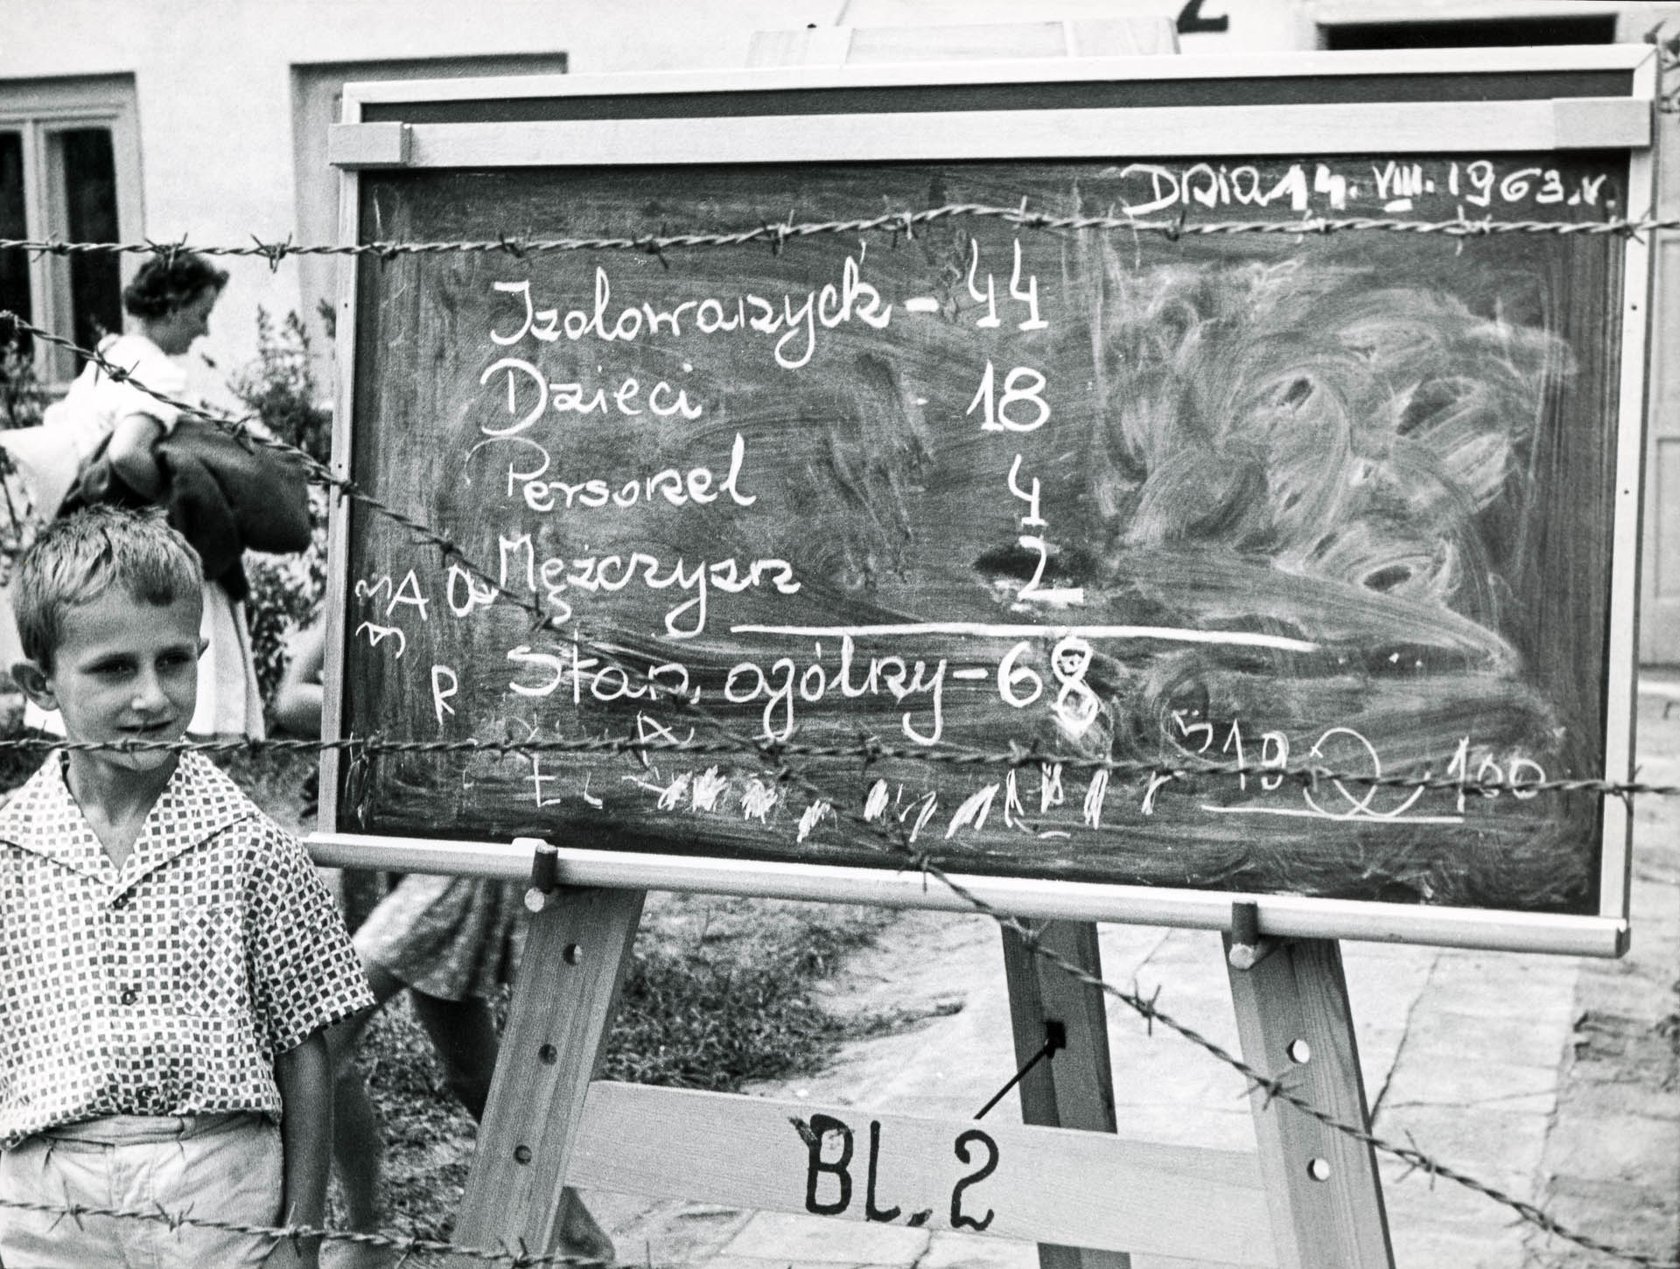 2
Dnia 14. VIII. 1963.r.
Izolowanych - 44
Dzieci 18
Personel 4
Mężczyzn 2
Stan ogólny - 68
R
A
100
BL. 2